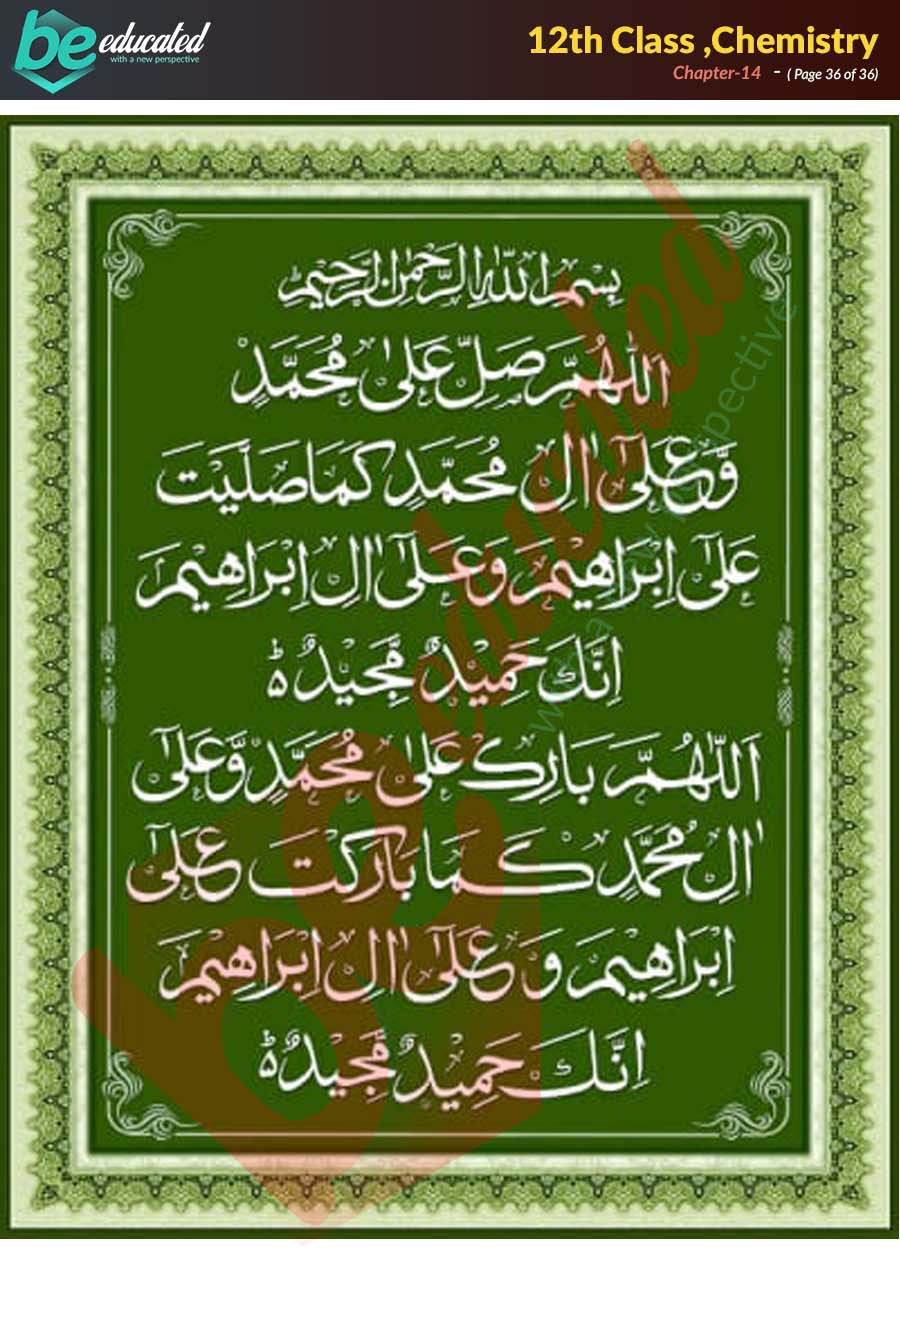 be educated
with a new perspective
12th Class ,Chemistry
Chapter-14 - ( Page 36 of 36)
بِسْمِ اللهِ الرَّحْمٰنِ الرَّحِيْمِ
اَللّٰهُمَّ صَلِّ عَلٰى مُحَمَّدٍ
وَّعَلٰٓى اٰلِ مُحَمَّدٍ كَمَا صَلَّيْتَ
عَلٰٓى اِبْرَاهِيْمَ وَعَلٰٓى اٰلِ اِبْرَاهِيْمَ
اِنَّكَ حَمِيْدٌ مَّجِيْدٌ ۃ
اَللّٰهُمَّ بَارِكْ عَلٰى مُحَمَّدٍ وَّعَلٰٓى
اٰلِ مُحَمَّدٍ كَمَا بَارَكْتَ عَلٰٓى
اِبْرَاهِيْمَ وَعَلٰٓى اٰلِ اِبْرَاهِيْمَ
اِنَّكَ حَمِيْدٌ مَّجِيْدٌ ۃ
be educated
with a new perspective